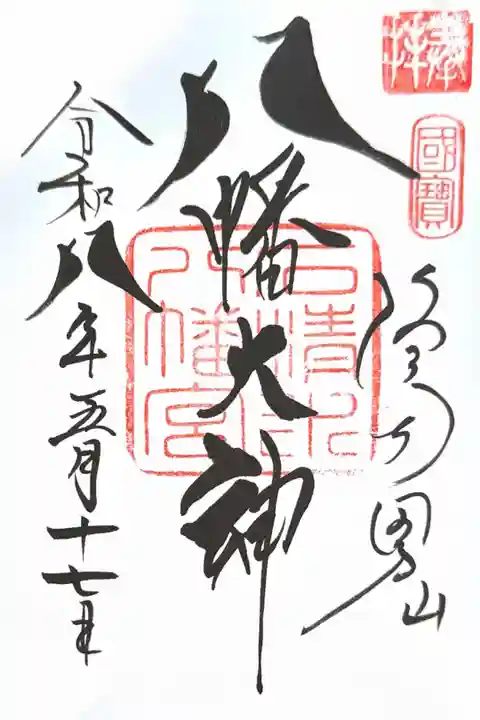 奉拝
國寶
男山
八幡大神
石清水
八幡宮
令和八年五月十七日